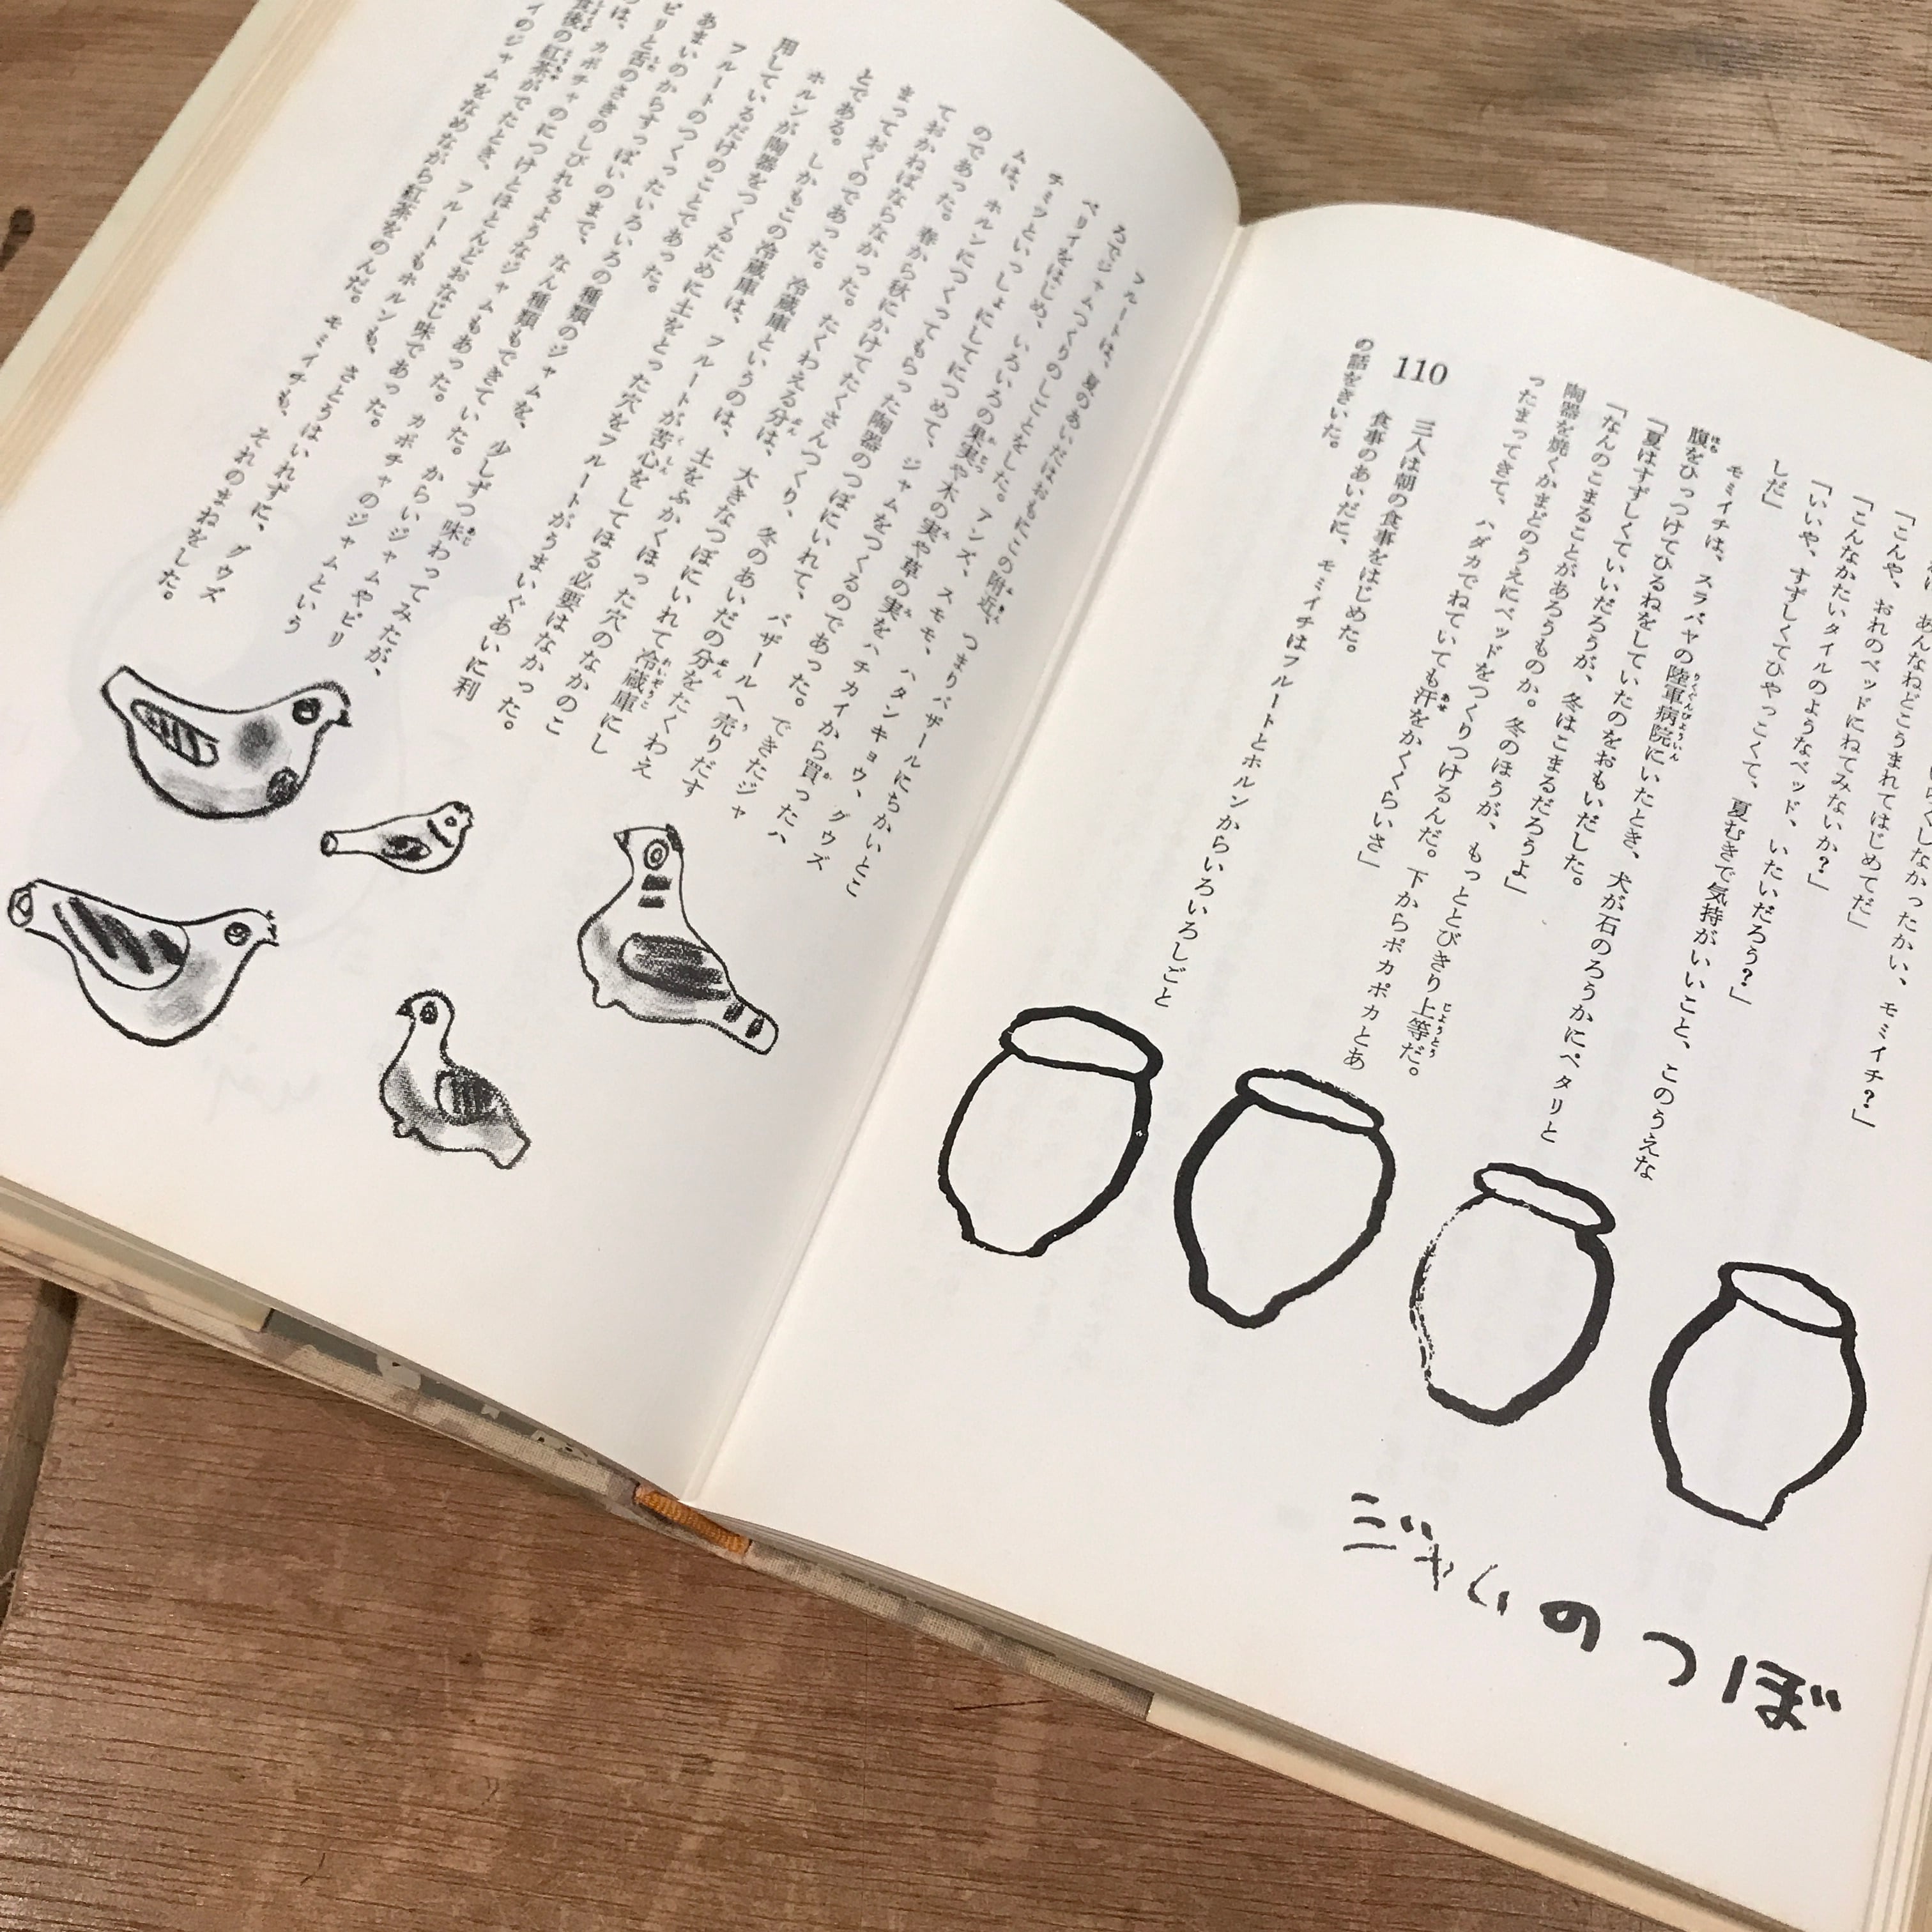 あんなねどこうまれてはじめてだ」
「こんや、おれのベッドにねてみないか?」
「こんなかたいタイルのようなベッド、いたいだろう?」
「いいや、すずしくてひやっこくて、夏むきで気持がいいこと、このうえな
しだ」
モミイチは、スラバヤの陸軍病院にいたとき、犬が石のろうかにペタリと
腹をひっつけてひるねをしていたのをおもいだした。
「夏はすずしくていいだろうが、冬はこまるだろうよ」
「なんのこまることがあろうものか。冬のほうが、もっととびきり上等だ。
陶器を焼くかまどのうえにベッドをつくりつけるんだ。下からポカポカとあ
ったまってきて、ハダカでねていても汗をかくくらいさ」
三人は朝の食事をはじめた。
食事のあいだに、モミイチはフルートとホルンからいろいろしごと
の話をきいた。
110
ぼしつのわき
フルートは、夏のあいだはおもにこの附近、つまりバザールにちかいとこ
ろでジャムつくりのしごとをした。アンズ、スモモ、ハタンキョウ、グウズ
ベリイをはじめ、いろいろの果実や木の実や草の実をハチカイから買った、ハ
チミツといっしょにしてにつめて、ジャムをつくるのであった。できたジャ
ムは、ホルンにつくってもらった陶器のつぼにいれて、バザールへ売りだす
のであった。春から秋にかけてたくさんつくり、冬のあいだの分をたくわえ
ておかねばならなかった。たくわえる分は、大きなつぼにいれて冷蔵庫にし
まっておくのであった。冷蔵庫というのは、土をふかくほった穴のなかのこ
とである。しかもこの冷蔵庫は、フルートが苦心をしてほる必要はなかった。
ホルンが陶器をつくるために土をとった穴をフルートがうまいぐあいに利
用しているだけのことであった。
フルートのつくったいろいろの種類のジャムを、少しずつ味わってみたが、
あまいのからすっぱいのまで、なん種類もできていた。からいジャムやピリ
ピリと舌のさきのしびれるようなジャムもあった。カボチャのジャムという
のは、カボチャのにつけとほとんどおなじ味であった。
食後の紅茶がでたとき、フルートもホルンも、さとうはいれずに、グウズ
イのジャムをなめながら紅茶をのんだ。モミイチも、それのまねをした。